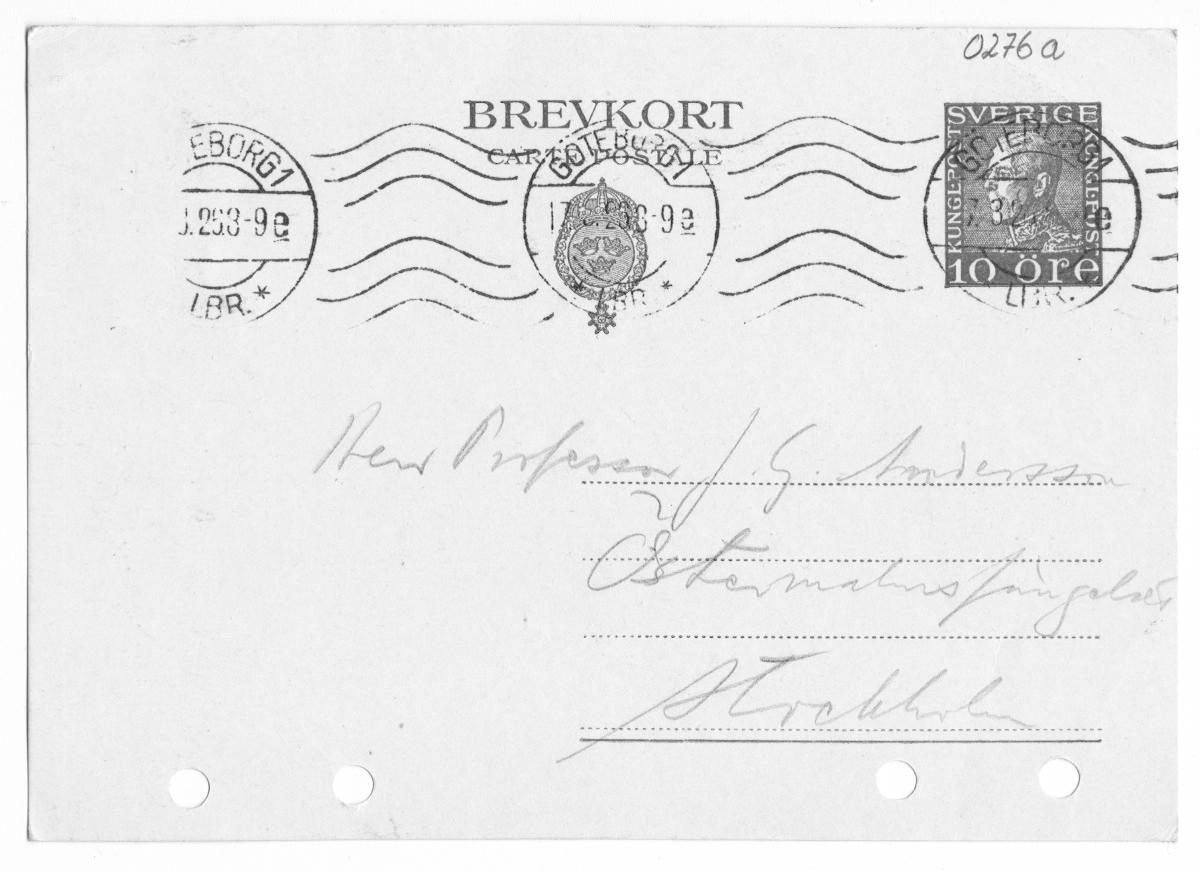 0276a
BREVKORT
CARTE POSTALE
SVERIGE
KUNGL POST
KUNGL POST
10 öre
EBORG1
.26 8-9 e
LBR. *
GÖTEBORG1
17. 26 8-9 e
* LBR. *
GÖTEBORG1
17.3.2 e
LBR.
Herr Professor J. G. Andersson
Östermalmsfängelset
Stockholm